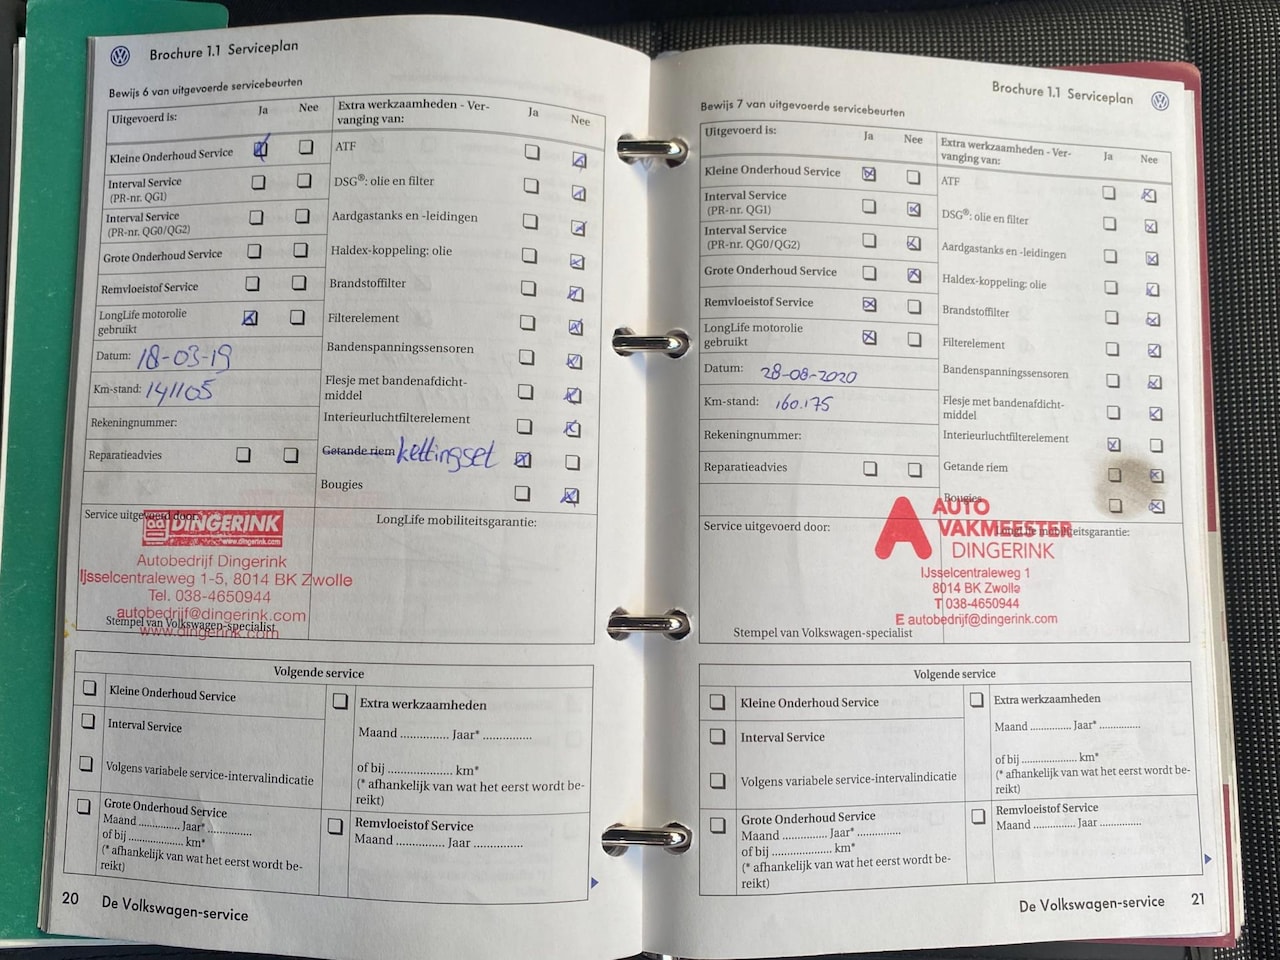 Brochure 1.1 Serviceplan
Bewijs 6 van uitgevoerde servicebeurten
Uitgevoerd is: Ja Nee
Kleine Onderhoud Service
Interval Service
(PR-nr. QG1)
Interval Service
(PR-nr. QG0/QG2)
Grote Onderhoud Service
Remvloeistof Service
LongLife motorolie
gebruikt
Datum: 18-03-19
Km-stand: 141105
Rekeningnummer:
Reparatieadvies
Extra werkzaamheden - Ver-
vanging van: Ja Nee
ATF
DSG®: olie en filter
Aardgastanks en -leidingen
Haldex-koppeling: olie
Brandstoffilter
Filterelement
Bandenspanningssensoren
Flesje met bandenafdicht-
middel
Interieurluchtfilterelement
Getande riem kettingset
Bougies
Service uitgevoerd door:
DINGERINK
www.dingerink.com
Autobedrijf Dingerink
Ijsselcentraleweg 1-5, 8014 BK Zwolle
Tel. 038-4650944
autobedrijf@dingerink.com
www.dingerink.com
Stempel van Volkswagen-specialist
LongLife mobiliteitsgarantie:
Volgende service
Kleine Onderhoud Service
Interval Service
Volgens variabele service-intervalindicatie
Grote Onderhoud Service
Maand .............. Jaar* ...............
of bij .................... km*
(* afhankelijk van wat het eerst wordt be-
reikt)
Extra werkzaamheden
Maand .............. Jaar* ...............
of bij .................... km*
(* afhankelijk van wat het eerst wordt be-
reikt)
Remvloeistof Service
Maand .............. Jaar ...............
20 De Volkswagen-service
Brochure 1.1 Serviceplan
Bewijs 7 van uitgevoerde servicebeurten
Uitgevoerd is: Ja Nee
Kleine Onderhoud Service
Interval Service
(PR-nr. QG1)
Interval Service
(PR-nr. QG0/QG2)
Grote Onderhoud Service
Remvloeistof Service
LongLife motorolie
gebruikt
Datum: 28-08-2020
Km-stand: 160.175
Rekeningnummer:
Reparatieadvies
Extra werkzaamheden - Ver-
vanging van: Ja Nee
ATF
DSG®: olie en filter
Aardgastanks en -leidingen
Haldex-koppeling: olie
Brandstoffilter
Filterelement
Bandenspanningssensoren
Flesje met bandenafdicht-
middel
Interieurluchtfilterelement
Getande riem
Bougies
Service uitgevoerd door:
LongLife mobiliteitsgarantie:
AUTO
VAKMEESTER
DINGERINK
IJsselcentraleweg 1
8014 BK Zwolle
T 038-4650944
E autobedrijf@dingerink.com
Stempel van Volkswagen-specialist
Volgende service
Kleine Onderhoud Service
Interval Service
Volgens variabele service-intervalindicatie
Grote Onderhoud Service
Maand .............. Jaar* ...............
of bij .................... km*
(* afhankelijk van wat het eerst wordt be-
reikt)
Extra werkzaamheden
Maand .............. Jaar* ...............
of bij .................... km*
(* afhankelijk van wat het eerst wordt be-
reikt)
Remvloeistof Service
Maand .............. Jaar ...............
De Volkswagen-service 21